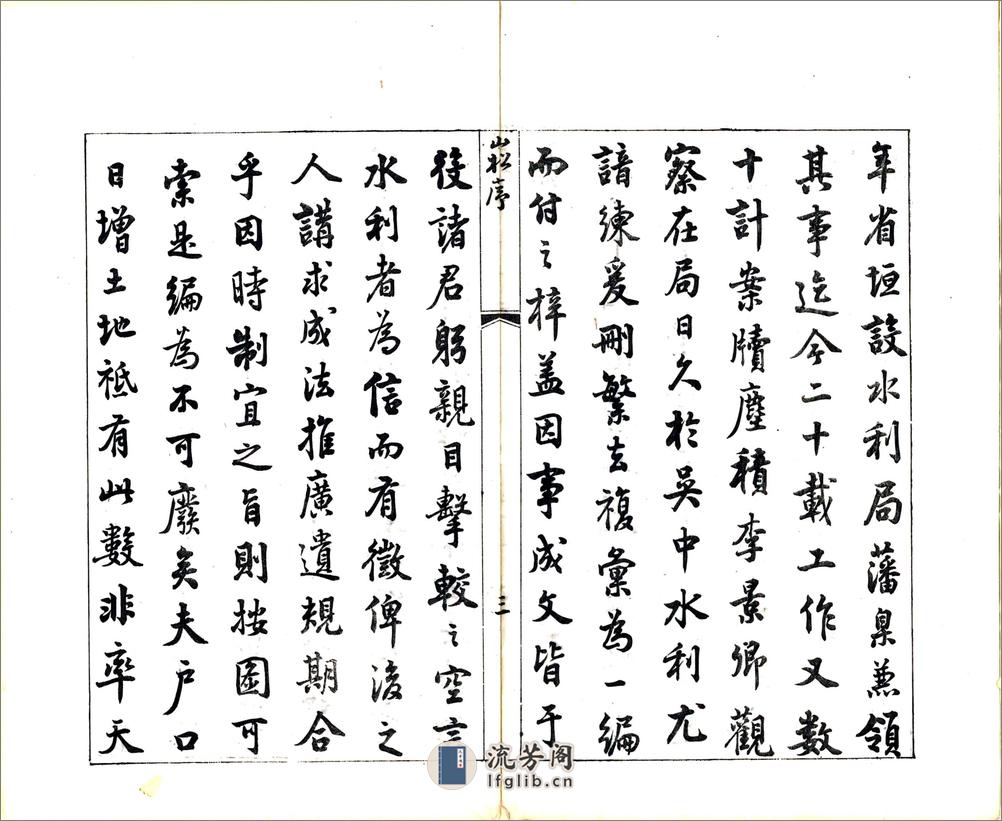 年省垣設水利局藩臬兼領
其事迄今二十載工作又數
十計案牘塵積李景卿觀
察在局日久於吳中水利尤
諳練爰刪繁去複彙為一編
而付之梓蓋因事成文皆于
崧序
三
役諸君躬親目擊較之空言
水利者為信而有徵俾後之
人講求成法推廣遺規期合
乎因時制宜之旨則按圖可
索是編為不可廢矣夫戶口
日增土地祗有此數非率天
流芳阁
lfglib.cn